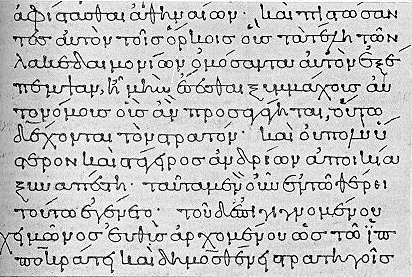 ἀφίστασθαι ἀθηναίων · καὶ πιστώσαν
τες αὐτὸν τοῖς ὅρκοις οἷς τὰ τέλη τῶν
λακεδαιμονίων ὀμόσαντα αὐτὸν ἐξέ
πεμψαν, ἦ μὴν ἔσεσθαι ξυμμάχοις αὐ
τονόμοις οἷς ἂν προσάγηται, οὕτω
δέχονται τὸν στρατόν · καὶ οὐ πολὺ ὕ
στερον καὶ στάγερος ἀνδρίων ἀποικία
ξυναπέστη · ταῦτα μὲν οὖν ἐν τῶ θέρει
τούτω ἐγένετο · τοῦ δ' ἐπιγιγνομένου
χειμῶνος εὐθὺς ἀρχομένου ὡς τῶ ἱπ
ποκράτει καὶ δημοσθένει στρατηγοῖς